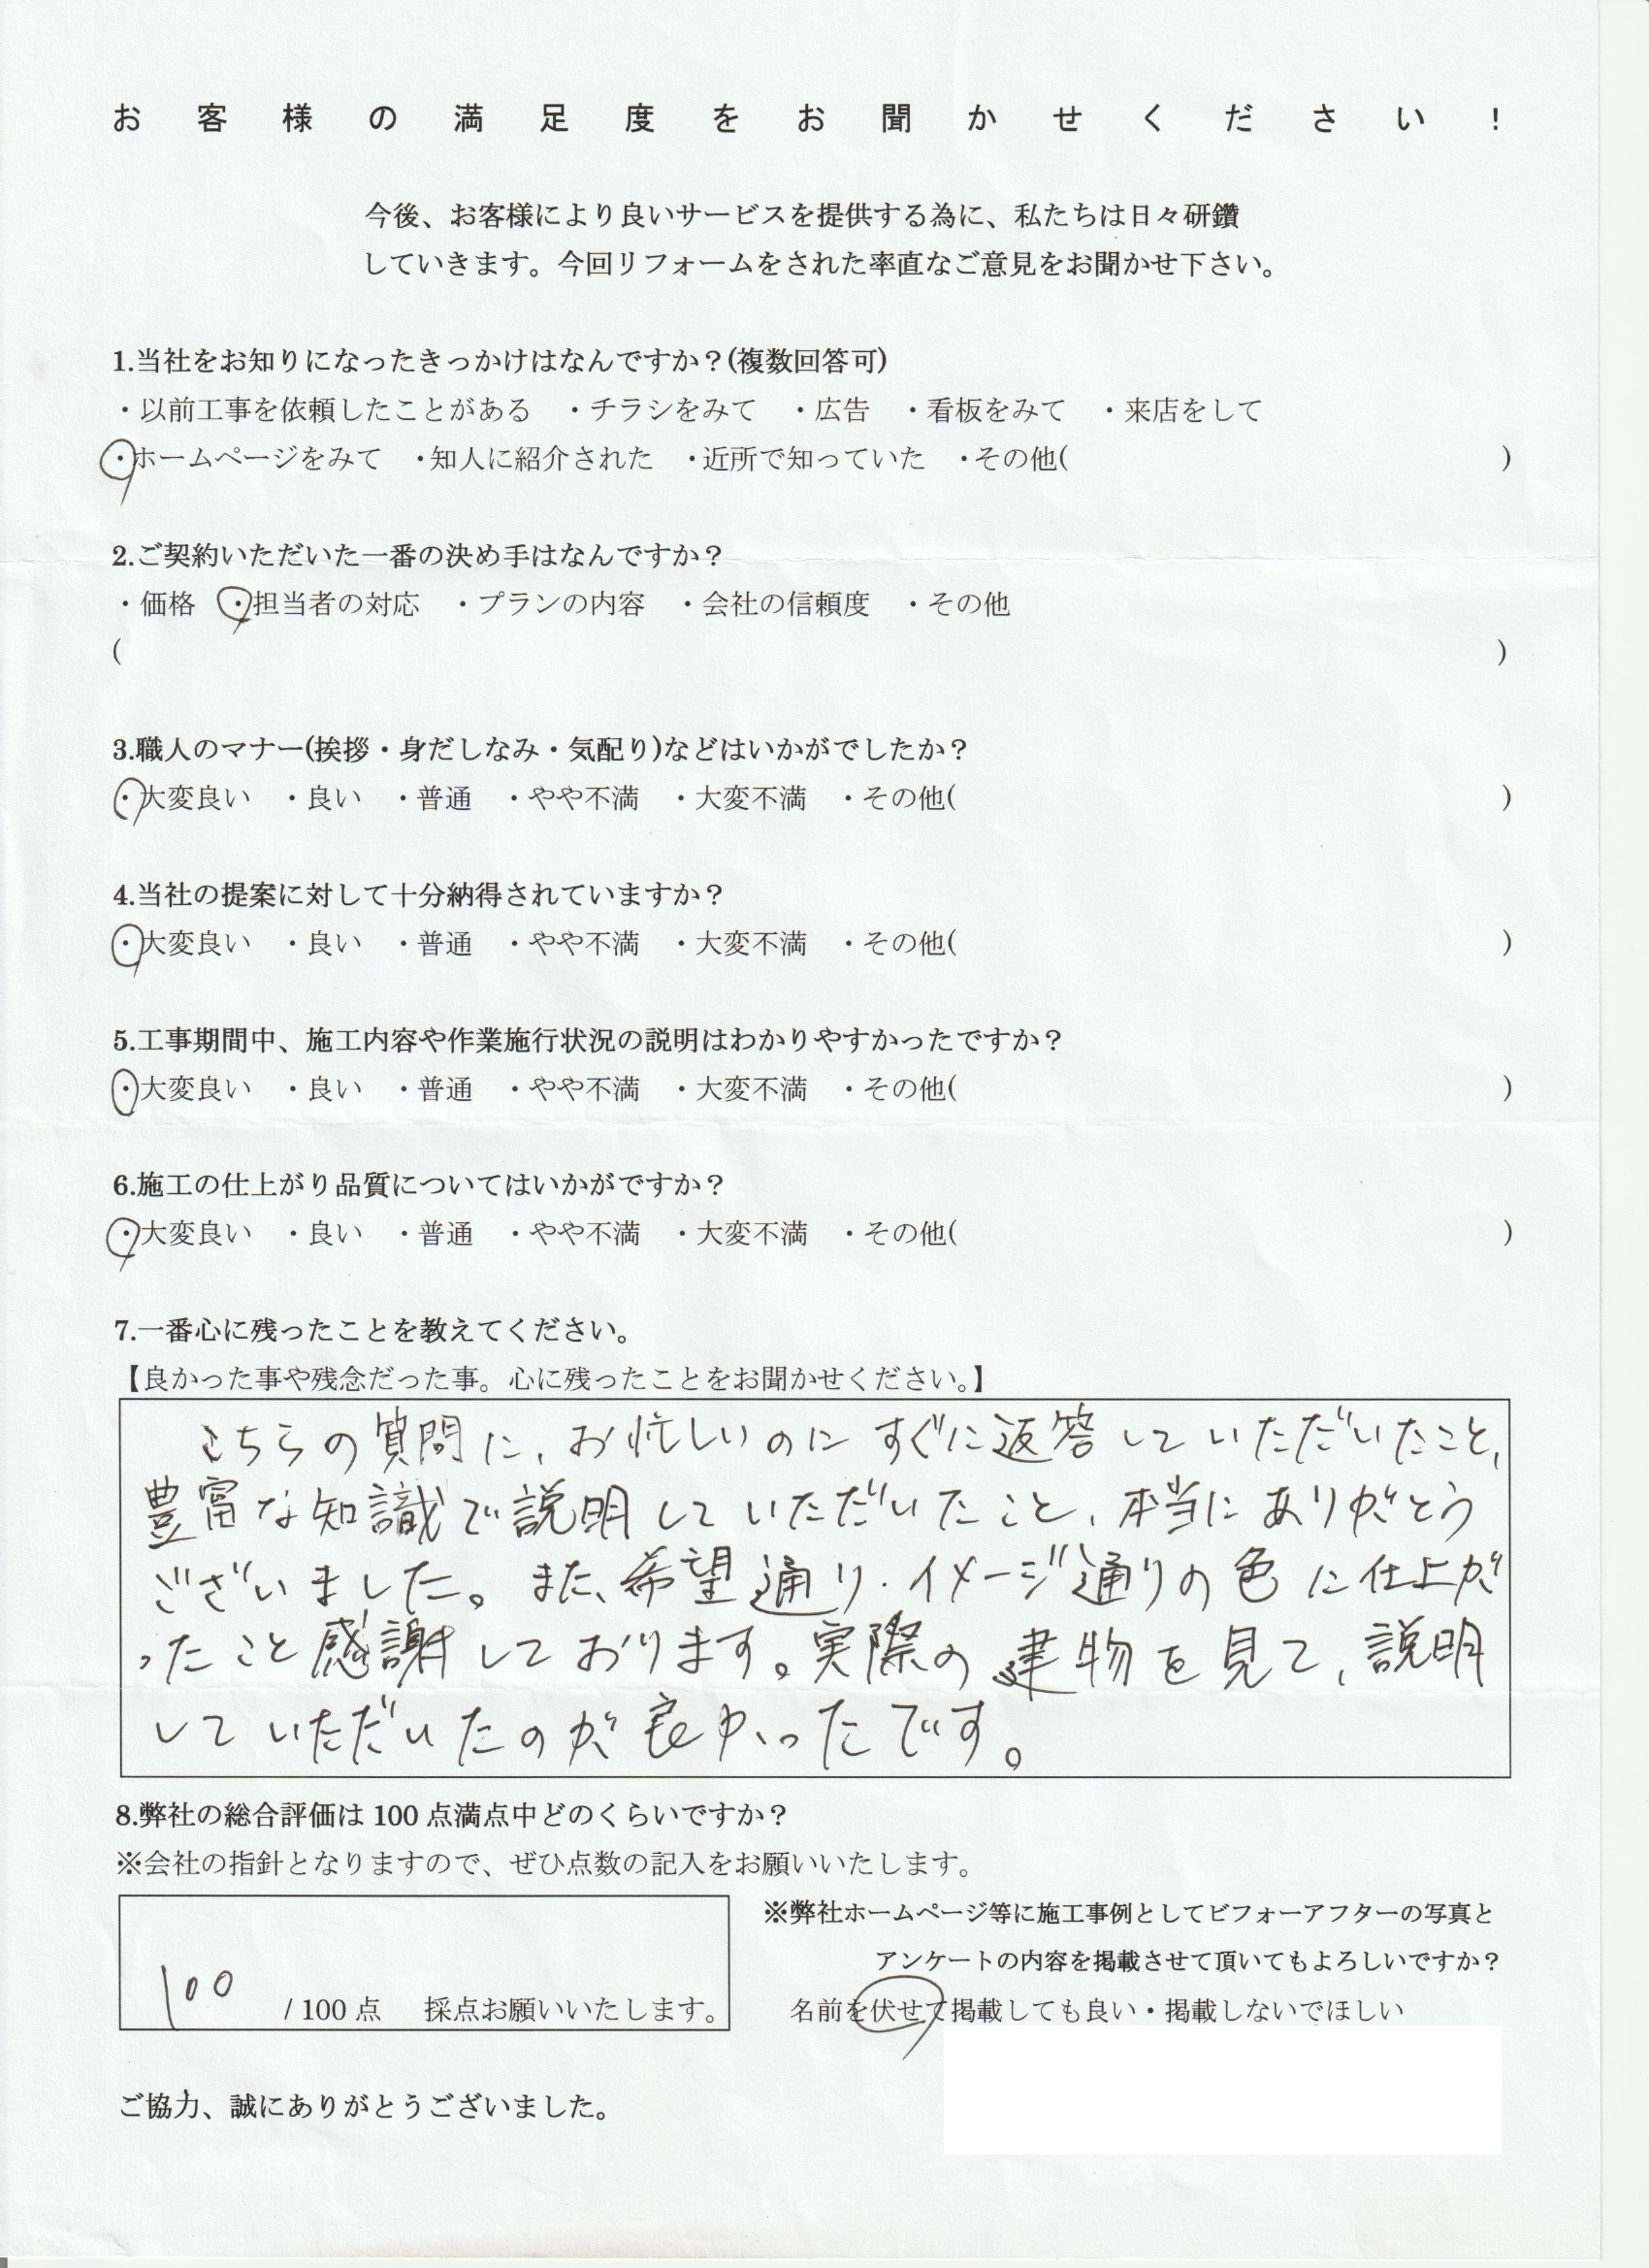 お客様の満足度をお聞かせください!
今後、お客様により良いサービスを提供する為に、私たちは日々研鑽
していきます。今回リフォームをされた率直なご意見をお聞かせ下さい。
1.当社をお知りになったきっかけはなんですか？(複数回答可)
・以前工事を依頼したことがある　・チラシをみて　・広告　・看板をみて　・来店をして
・ホームページをみて　・知人に紹介された　・近所で知っていた　・その他(　)
2.ご契約いただいた一番の決め手はなんですか？
・価格　・担当者の対応　・プランの内容　・会社の信頼度　・その他
(　)
3.職人のマナー(挨拶・身だしなみ・気配り)などはいかがでしたか？
・大変良い　・良い　・普通　・やや不満　・大変不満　・その他(　)
4.当社の提案に対して十分納得されていますか？
・大変良い　・良い　・普通　・やや不満　・大変不満　・その他(　)
5.工事期間中、施工内容や作業施行状況の説明はわかりやすかったですか？
・大変良い　・良い　・普通　・やや不満　・大変不満　・その他(　)
6.施工の仕上がり品質についてはいかがですか？
・大変良い　・良い　・普通　・やや不満　・大変不満　・その他(　)
7.一番心に残ったことを教えてください。
【良かった事や残念だった事。心に残ったことをお聞かせください。】
こちらの質問に、お忙しいのにすぐに返答していただいたこと、
豊富な知識で説明していただいたこと、本当にありがとう
ございました。また、希望通り・イメージ通りの色に仕上が
ったこと感謝しております。実際の建物を見て、説明
していただいたのが良かったです。
8.弊社の総合評価は 100 点満点中どのくらいですか？
※会社の指針となりますので、ぜひ点数の記入をお願いいたします。
100 / 100 点　採点お願いいたします。
※弊社ホームページ等に施工事例としてビフォーアフターの写真と
アンケートの内容を掲載させて頂いてもよろしいですか？
名前を伏せて掲載しても良い・掲載しないでほしい
ご協力、誠にありがとうございました。